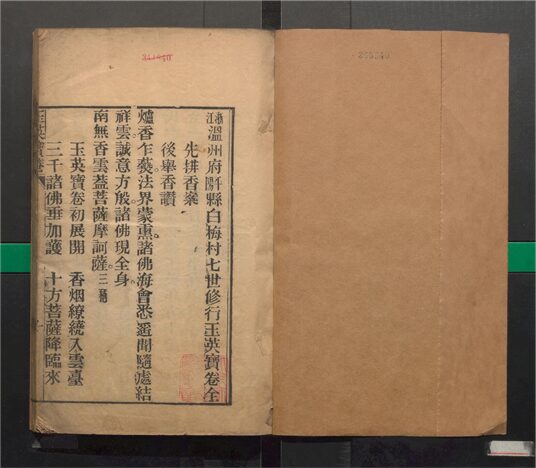 浙江溫州府平陽縣白梅村七世修行玉英寶卷全
先排香案
後舉香讚
爐香乍爇法界蒙熏諸佛海會悉遥聞隨處結
祥雲誠意方殷諸佛現全身
南無香雲蓋菩薩摩訶薩三稱
玉英寶卷初展開 香烟繚繞入雲臺
三千諸佛垂加護 十方菩薩降臨來
玉英寶卷